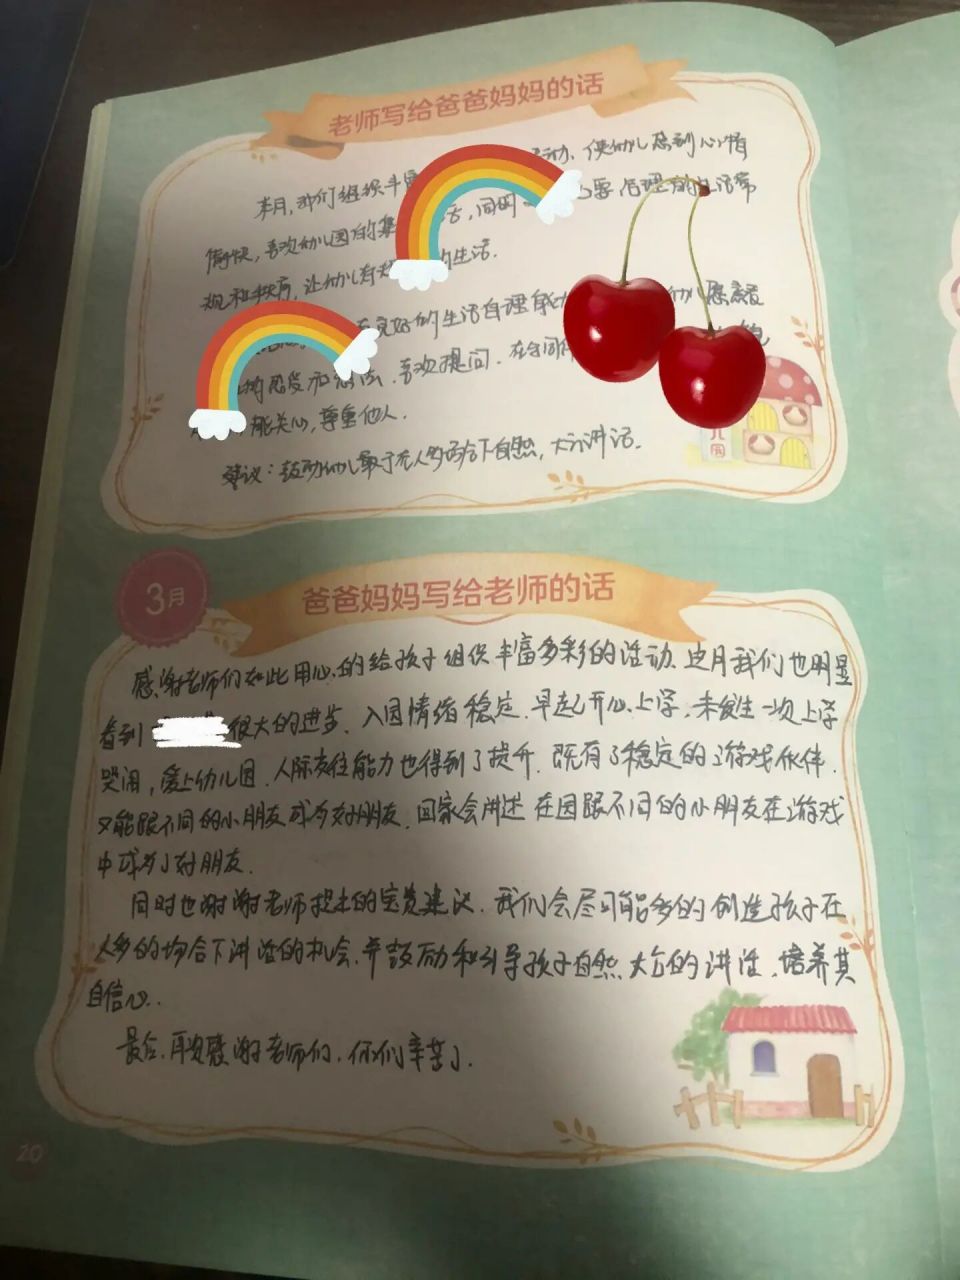 老师写给爸爸妈妈的话
本月,我们组织丰 活动、使幼儿感到心情
愉快,喜欢幼儿园的集 活,同时 合理的生活常
规和秩序,让幼儿有 的生活.
良好的生活自理能 幼儿愿意
的感受和想法,喜欢提问.在
能关心,尊重他人.
建议:鼓励幼儿敢于在人多场合下自然,大方讲话.
儿
园
3月
爸爸妈妈写给老师的话
感谢老师们如此用心的给孩子组织丰富多彩的活动、这月我们也明显
看到 很大的进步、入园情绪稳定.早起开心上学,未发生一次上学
哭闹,爱上幼儿园.人际交往能力也得到了提升.既有了稳定的游戏伙伴.
又能跟不同的小朋友成为好朋友.回家会讲述在园跟不同的小朋友在游戏
中成为了好朋友.
同时也谢谢老师提出的宝贵建议.我们会尽可能多的创造孩子在
人多的场合下讲话的机会.并鼓励和引导孩子自然、大方的讲话,培养其
自信心.
最后,再次感谢老师们,你们辛苦了.
20